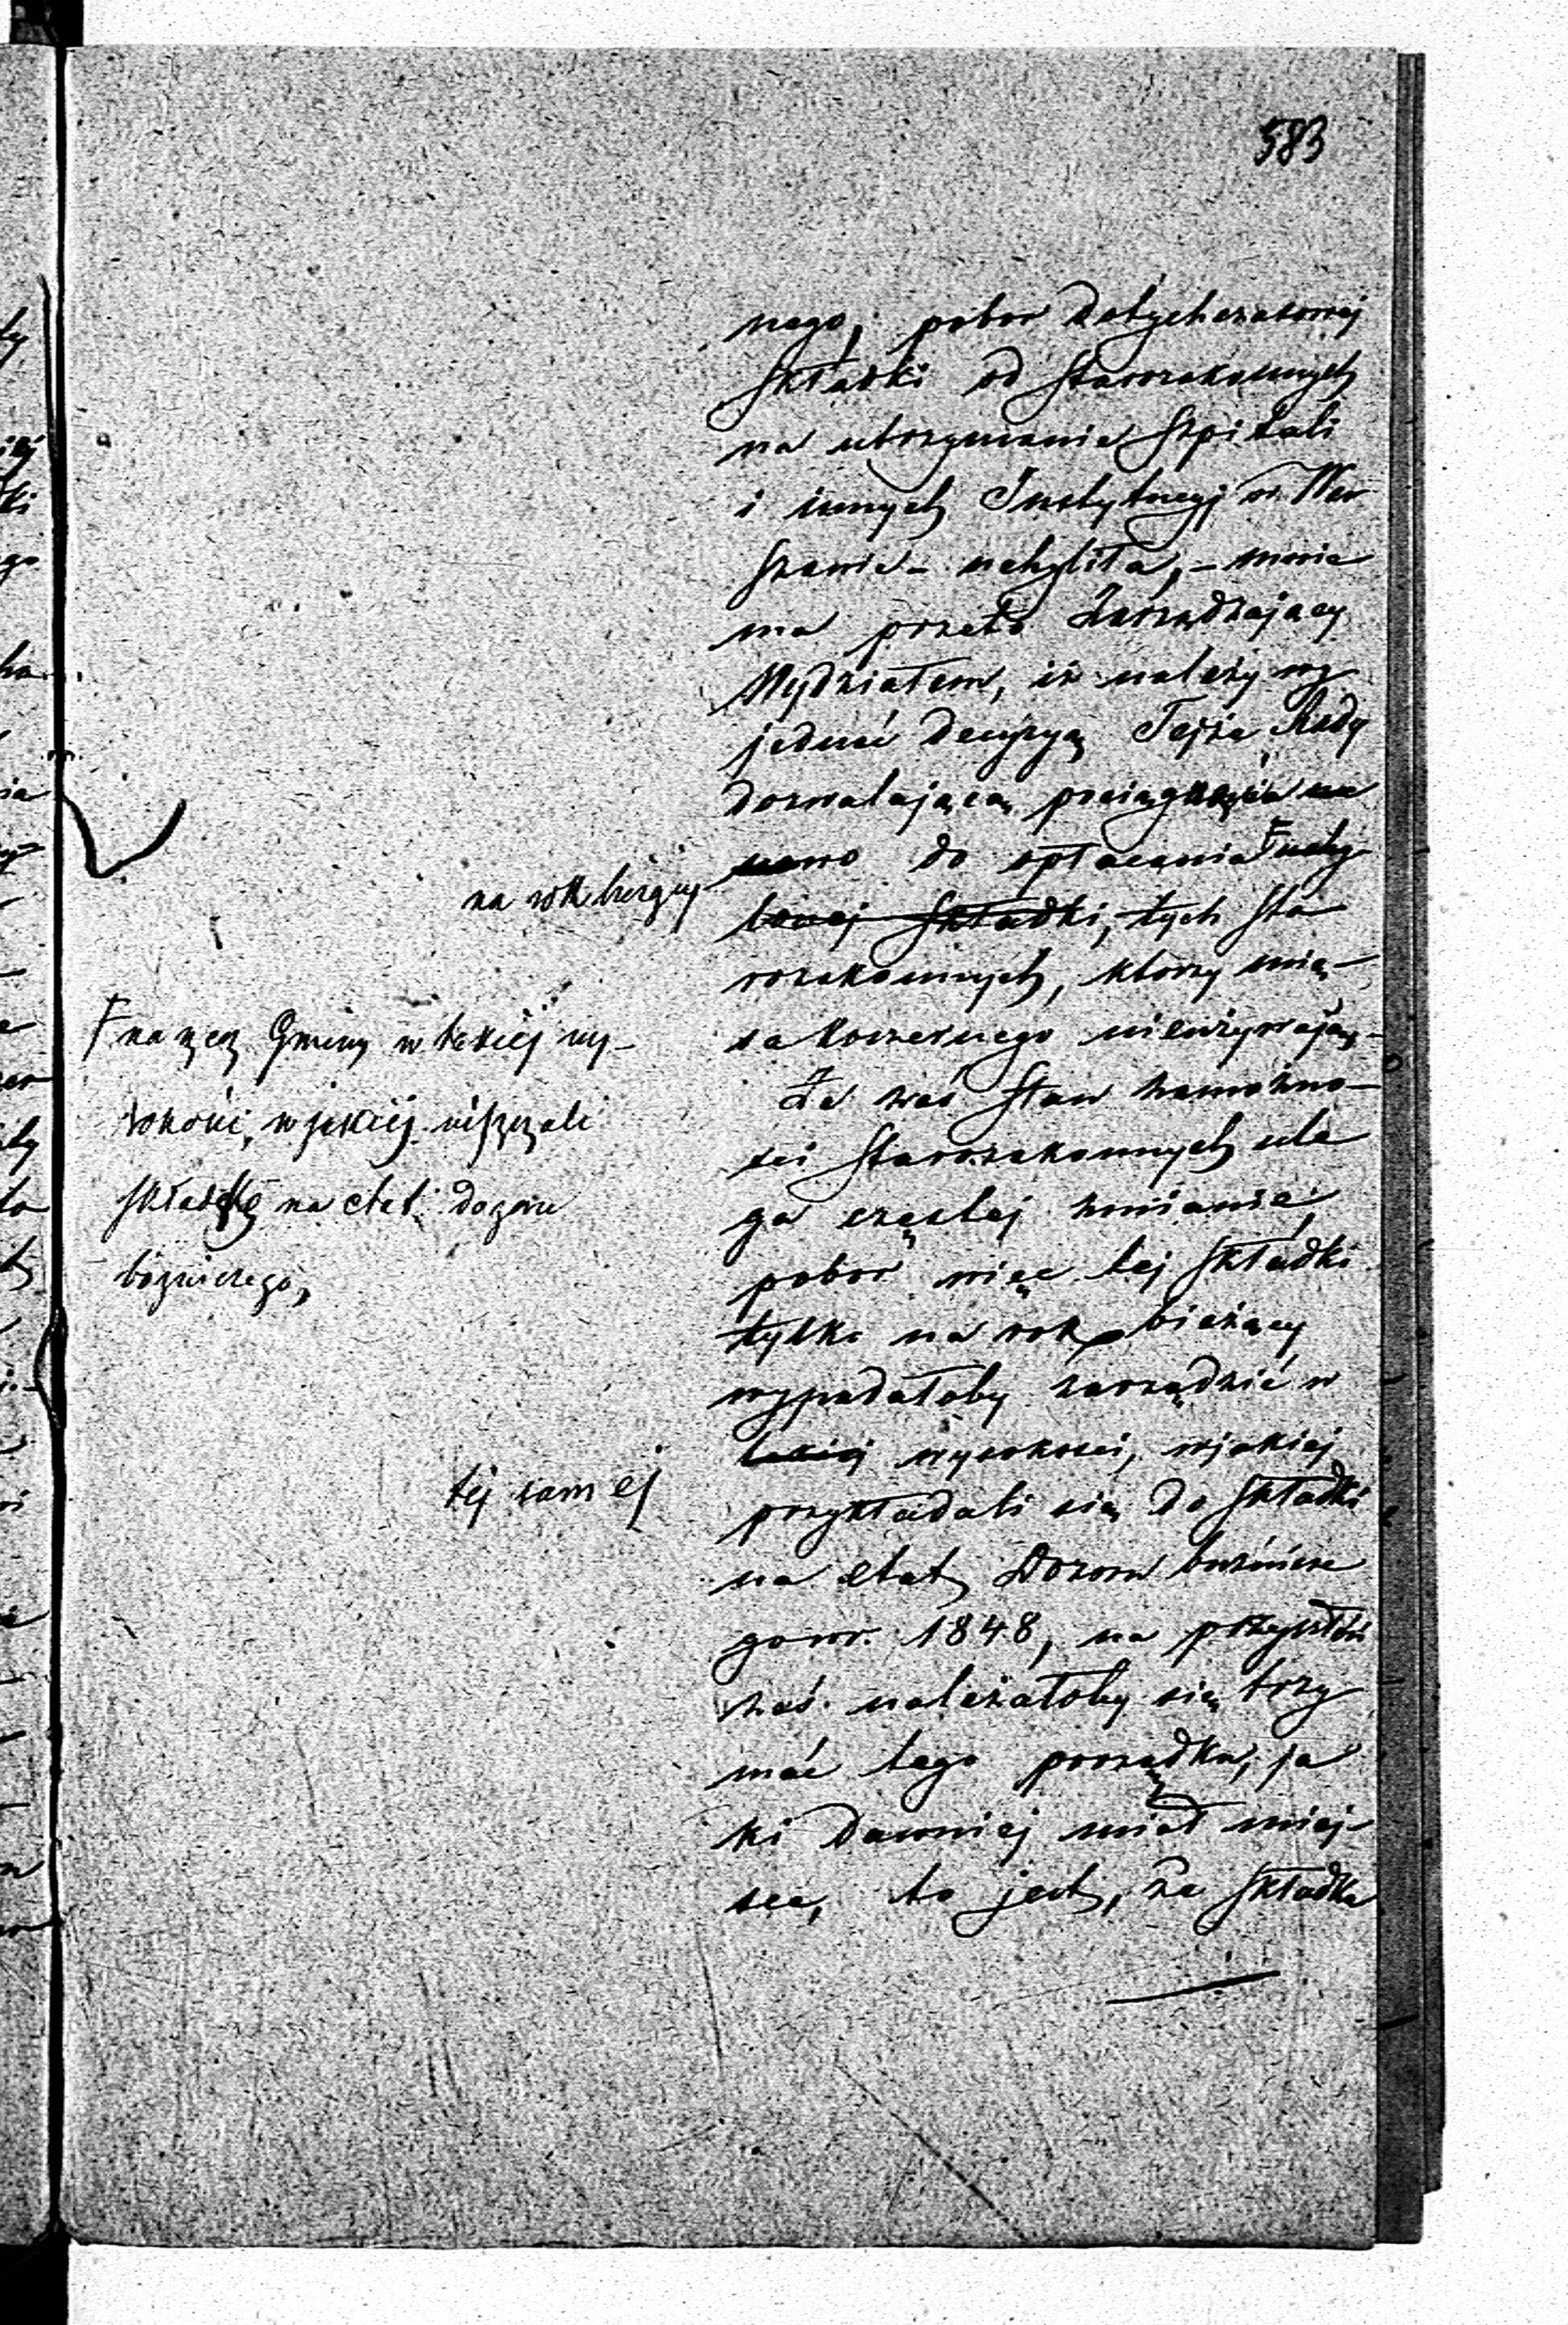 583
nego, pobor Dotychczasowej
Składki od Starozakonnych
na utrzymanie Szpitali
i innych Instytucyj w War
szawie – uchyliła, – mnie
ma przeto Zarządzający
Wydziałem, iż należy wy
jednać decyzyą Tejże Rady
dozwalającą pociągnięcia na
nowo do opłacania F uchy
lonej Składki, tych Sta
rozakonnych, którzy mię-
sa koszernego nieużywają,-
Że zaś Stan zamożno-
sci Starozakonnych ule
ga częstej zmianie,
pobor więc tej Składki
tylko na rok bieżący
wypadałoby zarządzić w
takiej wysokosci, wjakiej
przykładali się do Składki
na etat Dozoru bużnicze
go wr. 1848, na przyszłość
zaś należałoby się trzy
mać tego porządku, ja
ki dawniej miał miej-
sce, to jest, że Składka
na rok bieżący
F na rzecz Gminy w takiej wy-
sokości, w jakiej uiszczali
składkę na etat dozoru
bożniczego,
tej samej